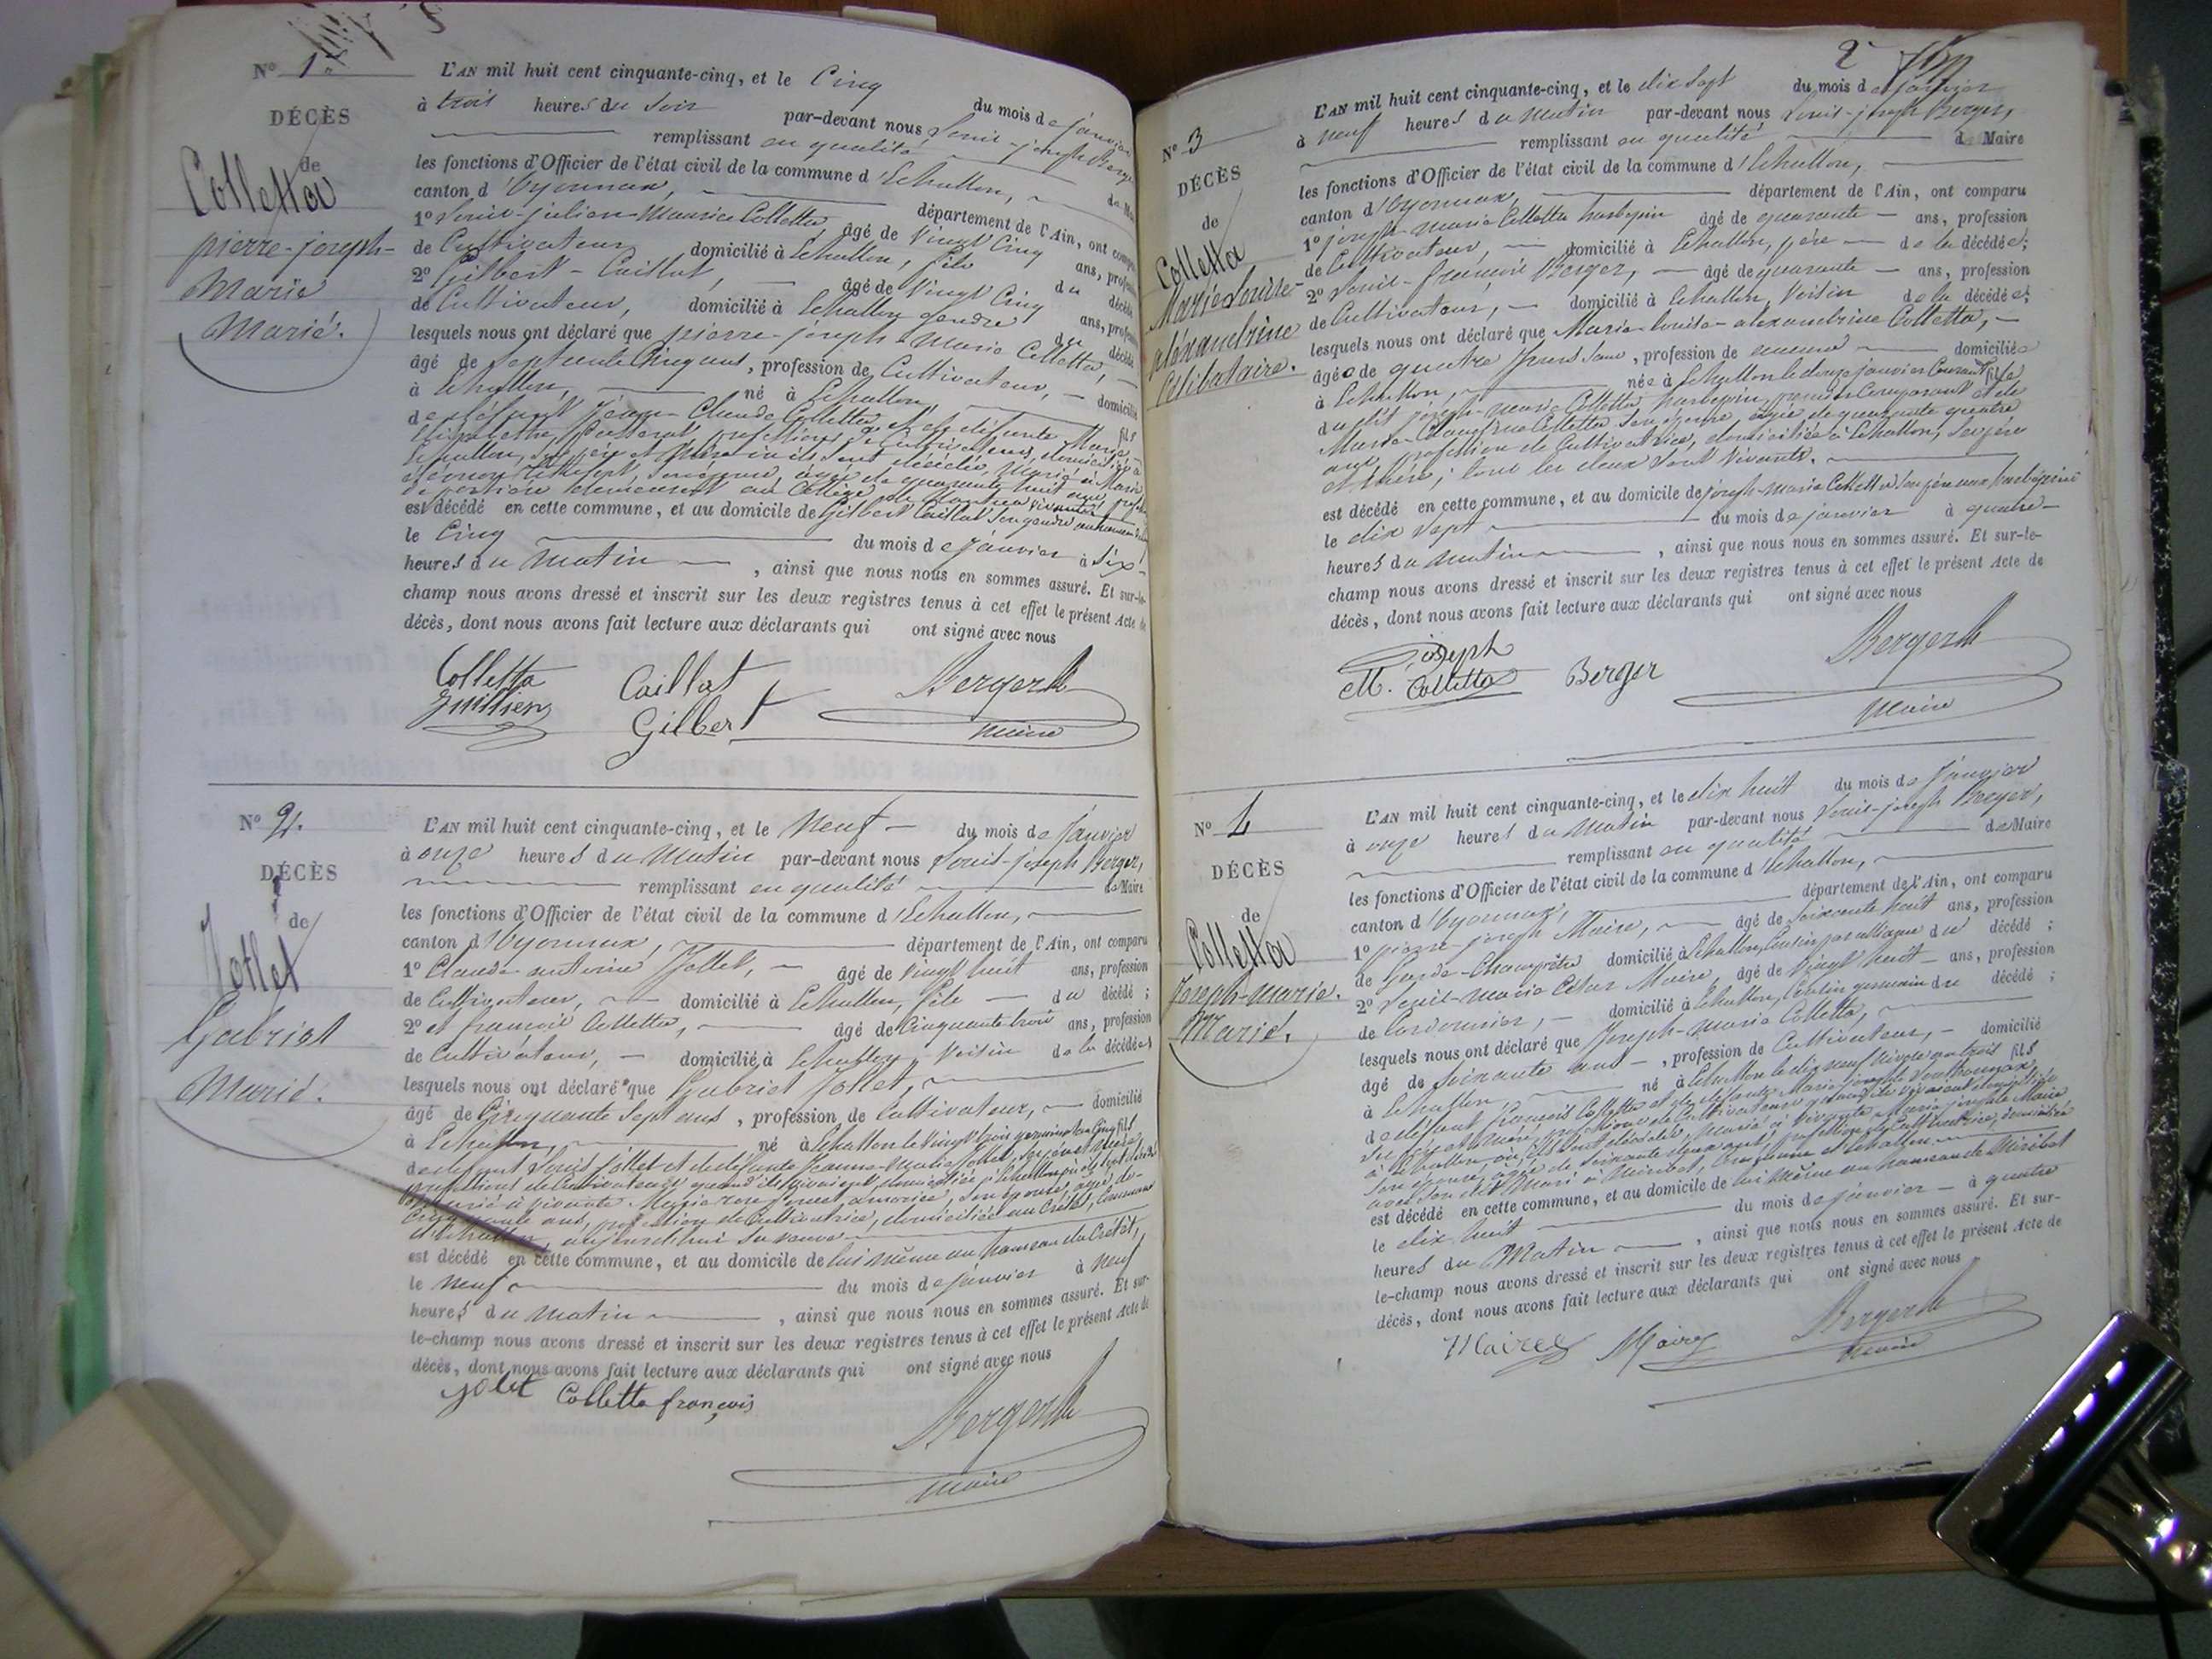 N° 1er
DÉCÈS
de
Colletta
pierre-joseph-
Marie
Marié.
L'AN mil huit cent cinquante-cinq, et le Cinq du mois de janvier
à trois heures du Soir par-devant nous Louis-joseph Berger
remplissant en qualité de Maire
les fonctions d'Officier de l'état civil de la commune d'Echallon,
canton d'Oyonnax, département de l'Ain, ont comparu
1° Louis-julien-Maurice Colletta, âgé de Vingt Cinq ans, profession
de Cultivateur, domicilié à Echallon, fils du décédé
2° Gilbert-Caillat, âgé de Vingt Cinq ans, profession
de Cultivateur, domicilié à Echallon gendre du décédé
lesquels nous ont déclaré que pierre-joseph-Marie Colletta,
âgé de Septante Cinq ans, profession de Cultivateur, domicilié
à Echallon, né à Echallon, fils
de défunt Jean-Claude Colletta et de défunte Marie-
est décédé en cette commune, et au domicile de Gilbert Caillat Son gendre
le Cinq du mois de janvier à Six
heures du matin, ainsi que nous nous en sommes assuré. Et sur-le-
champ nous avons dressé et inscrit sur les deux registres tenus à cet effet le présent Acte de
décès, dont nous avons fait lecture aux déclarants qui ont signé avec nous
Colletta Caillat Berger
Gilbert maire
N° 2.
DÉCÈS
de
Jollet
Gabriel
Marié.
L'AN mil huit cent cinquante-cinq, et le Neuf du mois de Janvier
à onze heures du Matin par-devant nous Louis-joseph Berger,
remplissant en qualité de Maire
les fonctions d'Officier de l'état civil de la commune d'Echallon,
canton d'Oyonnax, département de l'Ain, ont comparu
1° Claude-antoine Jollet, âgé de vingt huit ans, profession
de Cultivateur, domicilié à Echallon, fils du décédé;
2° et françois Colletta, âgé de Cinquante trois ans, profession
de Cultivateur, domicilié à Echallon, Voisin de la décédée
lesquels nous ont déclaré que Gabriel Jollet,
âgé de Cinquante Sept ans, profession de Cultivateur, domicilié
à Echallon, né à Echallon le vingt trois germinal an Cinq fils
de défunt Louis Jollet et de défunte Jeanne-Marie Jollet, Ses père et mère,
est décédé en cette commune, et au domicile de lui même au hameau du Crétêt,
le Neuf du mois de janvier à neuf
heures du matin, ainsi que nous nous en sommes assuré. Et sur-
le-champ nous avons dressé et inscrit sur les deux registres tenus à cet effet le présent Acte de
décès, dont nous avons fait lecture aux déclarants qui ont signé avec nous
jolet Colletta françois Berger
maire
2
N° 3
DÉCÈS
de
Colletta
Marie Louise-
aléxandrine
Célibataire.
L'AN mil huit cent cinquante-cinq, et le dix Sept du mois de janvier
à neuf heures du Matin par-devant nous Louis-joseph Berger,
remplissant en qualité de Maire
les fonctions d'Officier de l'état civil de la commune d'Echallon,
canton d'Oyonnax, département de l'Ain, ont comparu
1° joseph-marie Colletta harbepin âgé de quarante ans, profession
de Cultivateur, domicilié à Echallon, père de la décédée;
2° Louis-françois Berger, âgé de quarante ans, profession
de Cultivateur, domicilié à Echallon, Voisin de la décédée;
lesquels nous ont déclaré que Marie-Louise-alexandrine Colletta,
âgée de quatre jours, profession de aucune domiciliée
à Echallon, née à Echallon le douze janvier Courant fille
du dit joseph-marie Colletta harbepin, premier Comparant et de
Marie- Colletta Son épouse, âgée de quarante quatre
ans, profession de Cultivatrice, domiciliée à Echallon, Ses père
et Mère; tous les deux Sont Vivants.
est décédé en cette commune, et au domicile de joseph-marie Colletta Son père
le dix Sept du mois de janvier à quatre
heures du matin, ainsi que nous nous en sommes assuré. Et sur-le-
champ nous avons dressé et inscrit sur les deux registres tenus à cet effet le présent Acte de
décès, dont nous avons fait lecture aux déclarants qui ont signé avec nous
joseph
M. Colletta Berger Berger
Maire
N° 4
DÉCÈS
de
Colletta
Joseph-Marie.
Marié.
L'AN mil huit cent cinquante-cinq, et le dix huit du mois de Janvier
à onze heures du Matin par-devant nous Louis-joseph Berger,
remplissant en qualité de Maire
les fonctions d'Officier de l'état civil de la commune d'Echallon,
canton d'Oyonnax, département de l'Ain, ont comparu
1° pierre-joseph Maire, âgé de Soixante huit ans, profession
de Garde-Champêtre domicilié à Echallon, Cousin par alliance du décédé;
2° Louis-Marie César Maire, âgé de Vingt huit ans, profession
de Cordonnier, domicilié à Echallon, Cousin germain du décédé;
lesquels nous ont déclaré que Joseph-Marie Colletta,
âgé de Soixante ans, profession de Cultivateur, domicilié
à Echallon, né à Echallon le dix neuf Nivose an trois fils
de défunt françois Colletta et de défunte Marie-josephte
est décédé en cette commune, et au domicile de lui même au hameau de Miribel
le dix huit du mois de janvier à quatre
heures du Matin, ainsi que nous nous en sommes assuré. Et sur-
le-champ nous avons dressé et inscrit sur les deux registres tenus à cet effet le présent Acte de
décès, dont nous avons fait lecture aux déclarants qui ont signé avec nous
Maire Maire Berger
maire